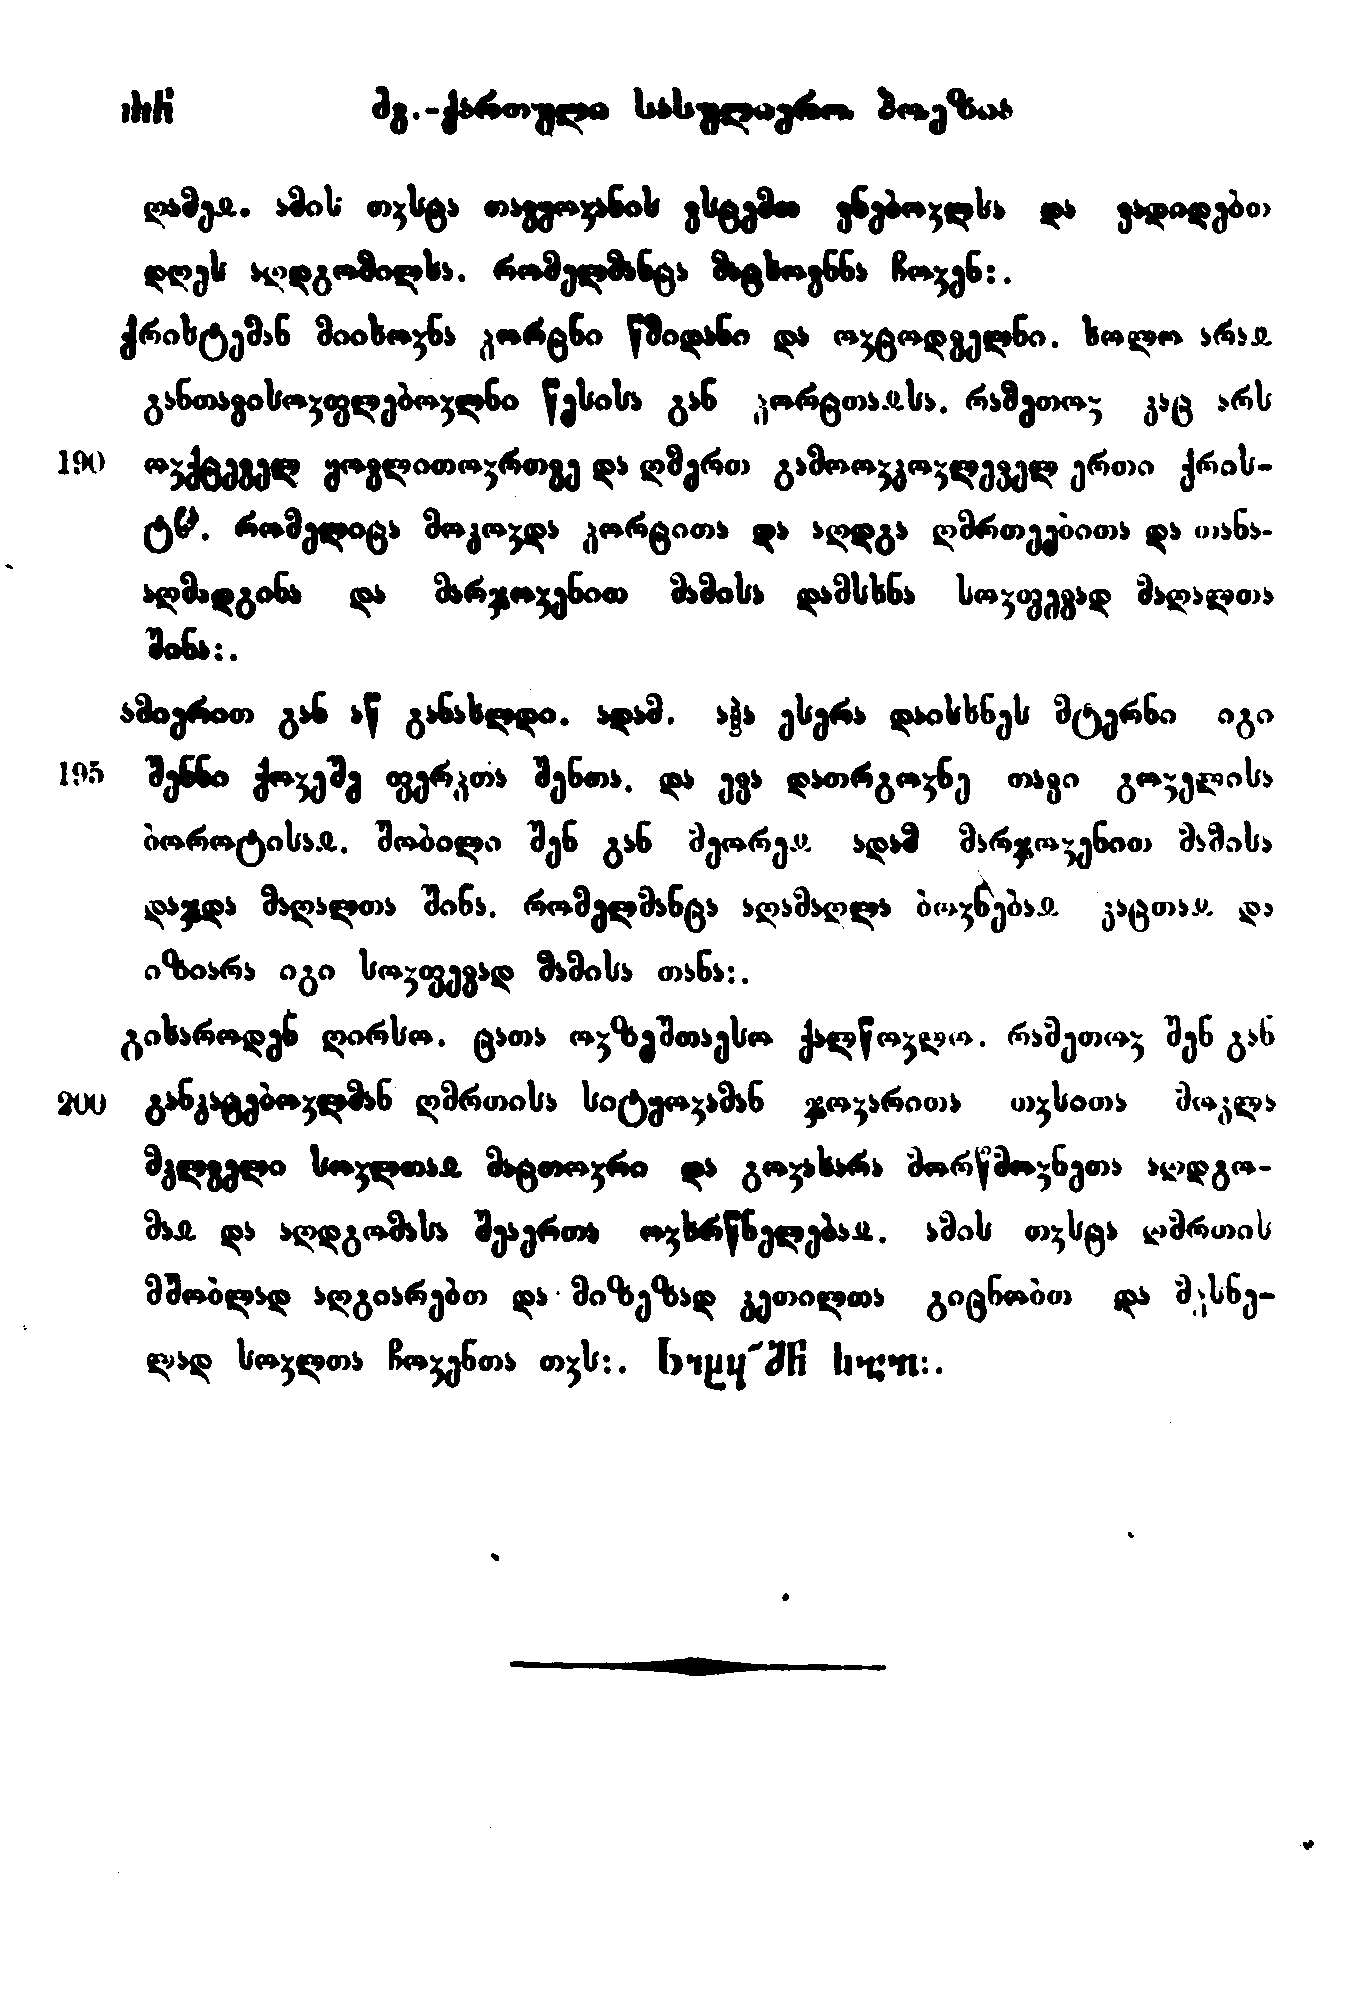 ძვ.-ქართული სასულიერო პოეზია
ღამეჲ. ამის თჳსცა თაყუოჳანის ვსცემთ ვნებოჳლსა და ვადიდებთ
დღეს აღდგომილსა. რომელმანცა მაცხოვნნა ჩოჳენ:.
ქრისტემან მიიხოჳნა კორცნი წმიდანი და ოჳცოდველნი. ხოლო არაჲ
განთავისოჳფლებოჳლნი წესისა გან კორცთაჲსა. რამეთოჳ კაც არს
190 ოჳქცეველ ყოვლითოჳრთვე და ღმერთ გამოოჳკოჳლეველ ერთი ქრის-
რომელიცა მოკოჳდა კორცითა და აღდგა ღმრთეებითა და თანა-
აღმადგინა და მარჯოჳენით მამისა დამსხნა სოჳფევად მაღალთა
შინა:.
ამიერით გან აწ განახლდი. ადამ. აჰა ესერა დაისხნეს მტერნი იგი
195 შენნი ქოჳეშე ფერკთა შენთა. და ევა დათრგოჳნე თავი გოჳელისა
ბოროტისაჲ. შობილი შენ გან მეორეჲ ადამ მარჯოჳენით მამისა
დაჯდა მაღალთა შინა. რომელმანცა აღამაღლა ბოჳნებაჲ კაცთაჲ და
იზიარა იგი სოჳფევად მამისა თანა:.
გიხაროდენ ღირსო. ცათა ოჳზეშთაესო ქალწოჳლო. რამეთოჳ შენ გან
200 განკაცებოჳლმან ღმრთისა სიტყოჳამან ჯოჳარითა თჳსითა მოკლა
მკლველი სოჳლთაჲ მაცთოჳრი და გოჳახარა მორწმოჳნეთა აღდგო-
მაჲ და აღდგომასა შეაერთა ოჳხრწნელებაჲ. ამის თჳსცა ღმრთის
მშობლად აღგიარებთ და მიზეზად კეთილთა გიცნობთ და მკსნე-
ლად სოჳლთა ჩოჳენთა თჳს:.